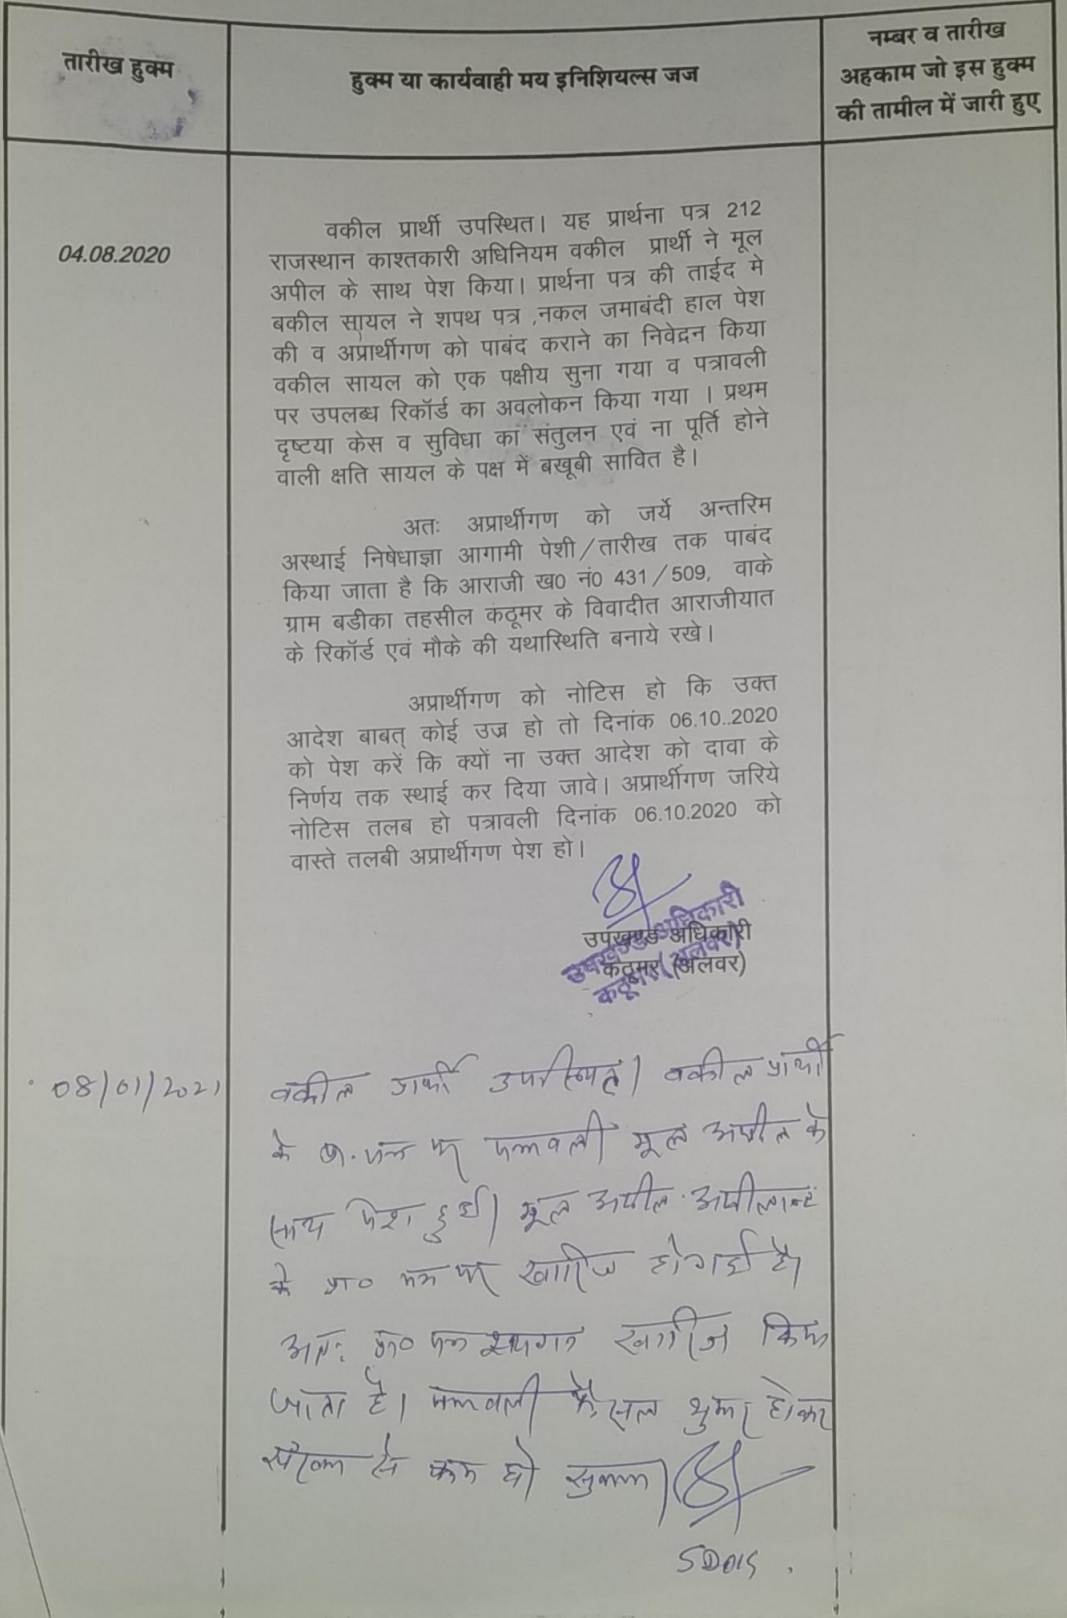 तारीख हुक्म
हुक्म या कार्यवाही मय इनिशियल्स जज
नम्बर व तारीख
अहकाम जो इस हुक्म
की तामील में जारी हुए
04.08.2020
वकील प्रार्थी उपस्थित। यह प्रार्थना पत्र 212
राजस्थान काश्तकारी अधिनियम वकील प्रार्थी ने मूल
अपील के साथ पेश किया। प्रार्थना पत्र की ताईद मे
बकील सायल ने शपथ पत्र ,नकल जमाबंदी हाल पेश
की व अप्रार्थीगण को पाबंद कराने का निवेदन किया
वकील सायल को एक पक्षीय सुना गया व पत्रावली
पर उपलब्ध रिकॉर्ड का अवलोकन किया गया । प्रथम
दृष्टया केस व सुविधा का संतुलन एवं ना पूर्ति होने
वाली क्षति सायल के पक्ष में बखूबी सावित है।
अतः अप्रार्थीगण को जर्ये अन्तरिम
अस्थाई निषेधाज्ञा आगामी पेशी/तारीख तक पाबंद
किया जाता है कि आराजी ख0 नं0 431/509, वाके
ग्राम बडीका तहसील कठूमर के विवादीत आराजीयात
के रिकॉर्ड एवं मौके की यथास्थिति बनाये रखे।
अप्रार्थीगण को नोटिस हो कि उक्त
आदेश बाबत् कोई उज्र हो तो दिनांक 06.10..2020
को पेश करें कि क्यों ना उक्त आदेश को दावा के
निर्णय तक स्थाई कर दिया जावे। अप्रार्थीगण जरिये
नोटिस तलब हो पत्रावली दिनांक 06.10.2020 को
वास्ते तलबी अप्रार्थीगण पेश हो।
उपखण्ड अधिकारी
कठूमर (अलवर)
उपखण्ड अधिकारी
कठूमर (अलवर)
08/01/2021
वकील प्रार्थी उपस्थित। वकील प्रार्थी
के प्रा. पत्र पर पत्रावली मूल अपील के
साथ पेश हुई। मूल अपील अपीलान्ट
के प्रा० पत्र पर खारिज हो गई है।
अतः प्रा० पत्र स्थगन खारिज किया
जाता है। पत्रावली फैसल शुमार होकर
से कम हो